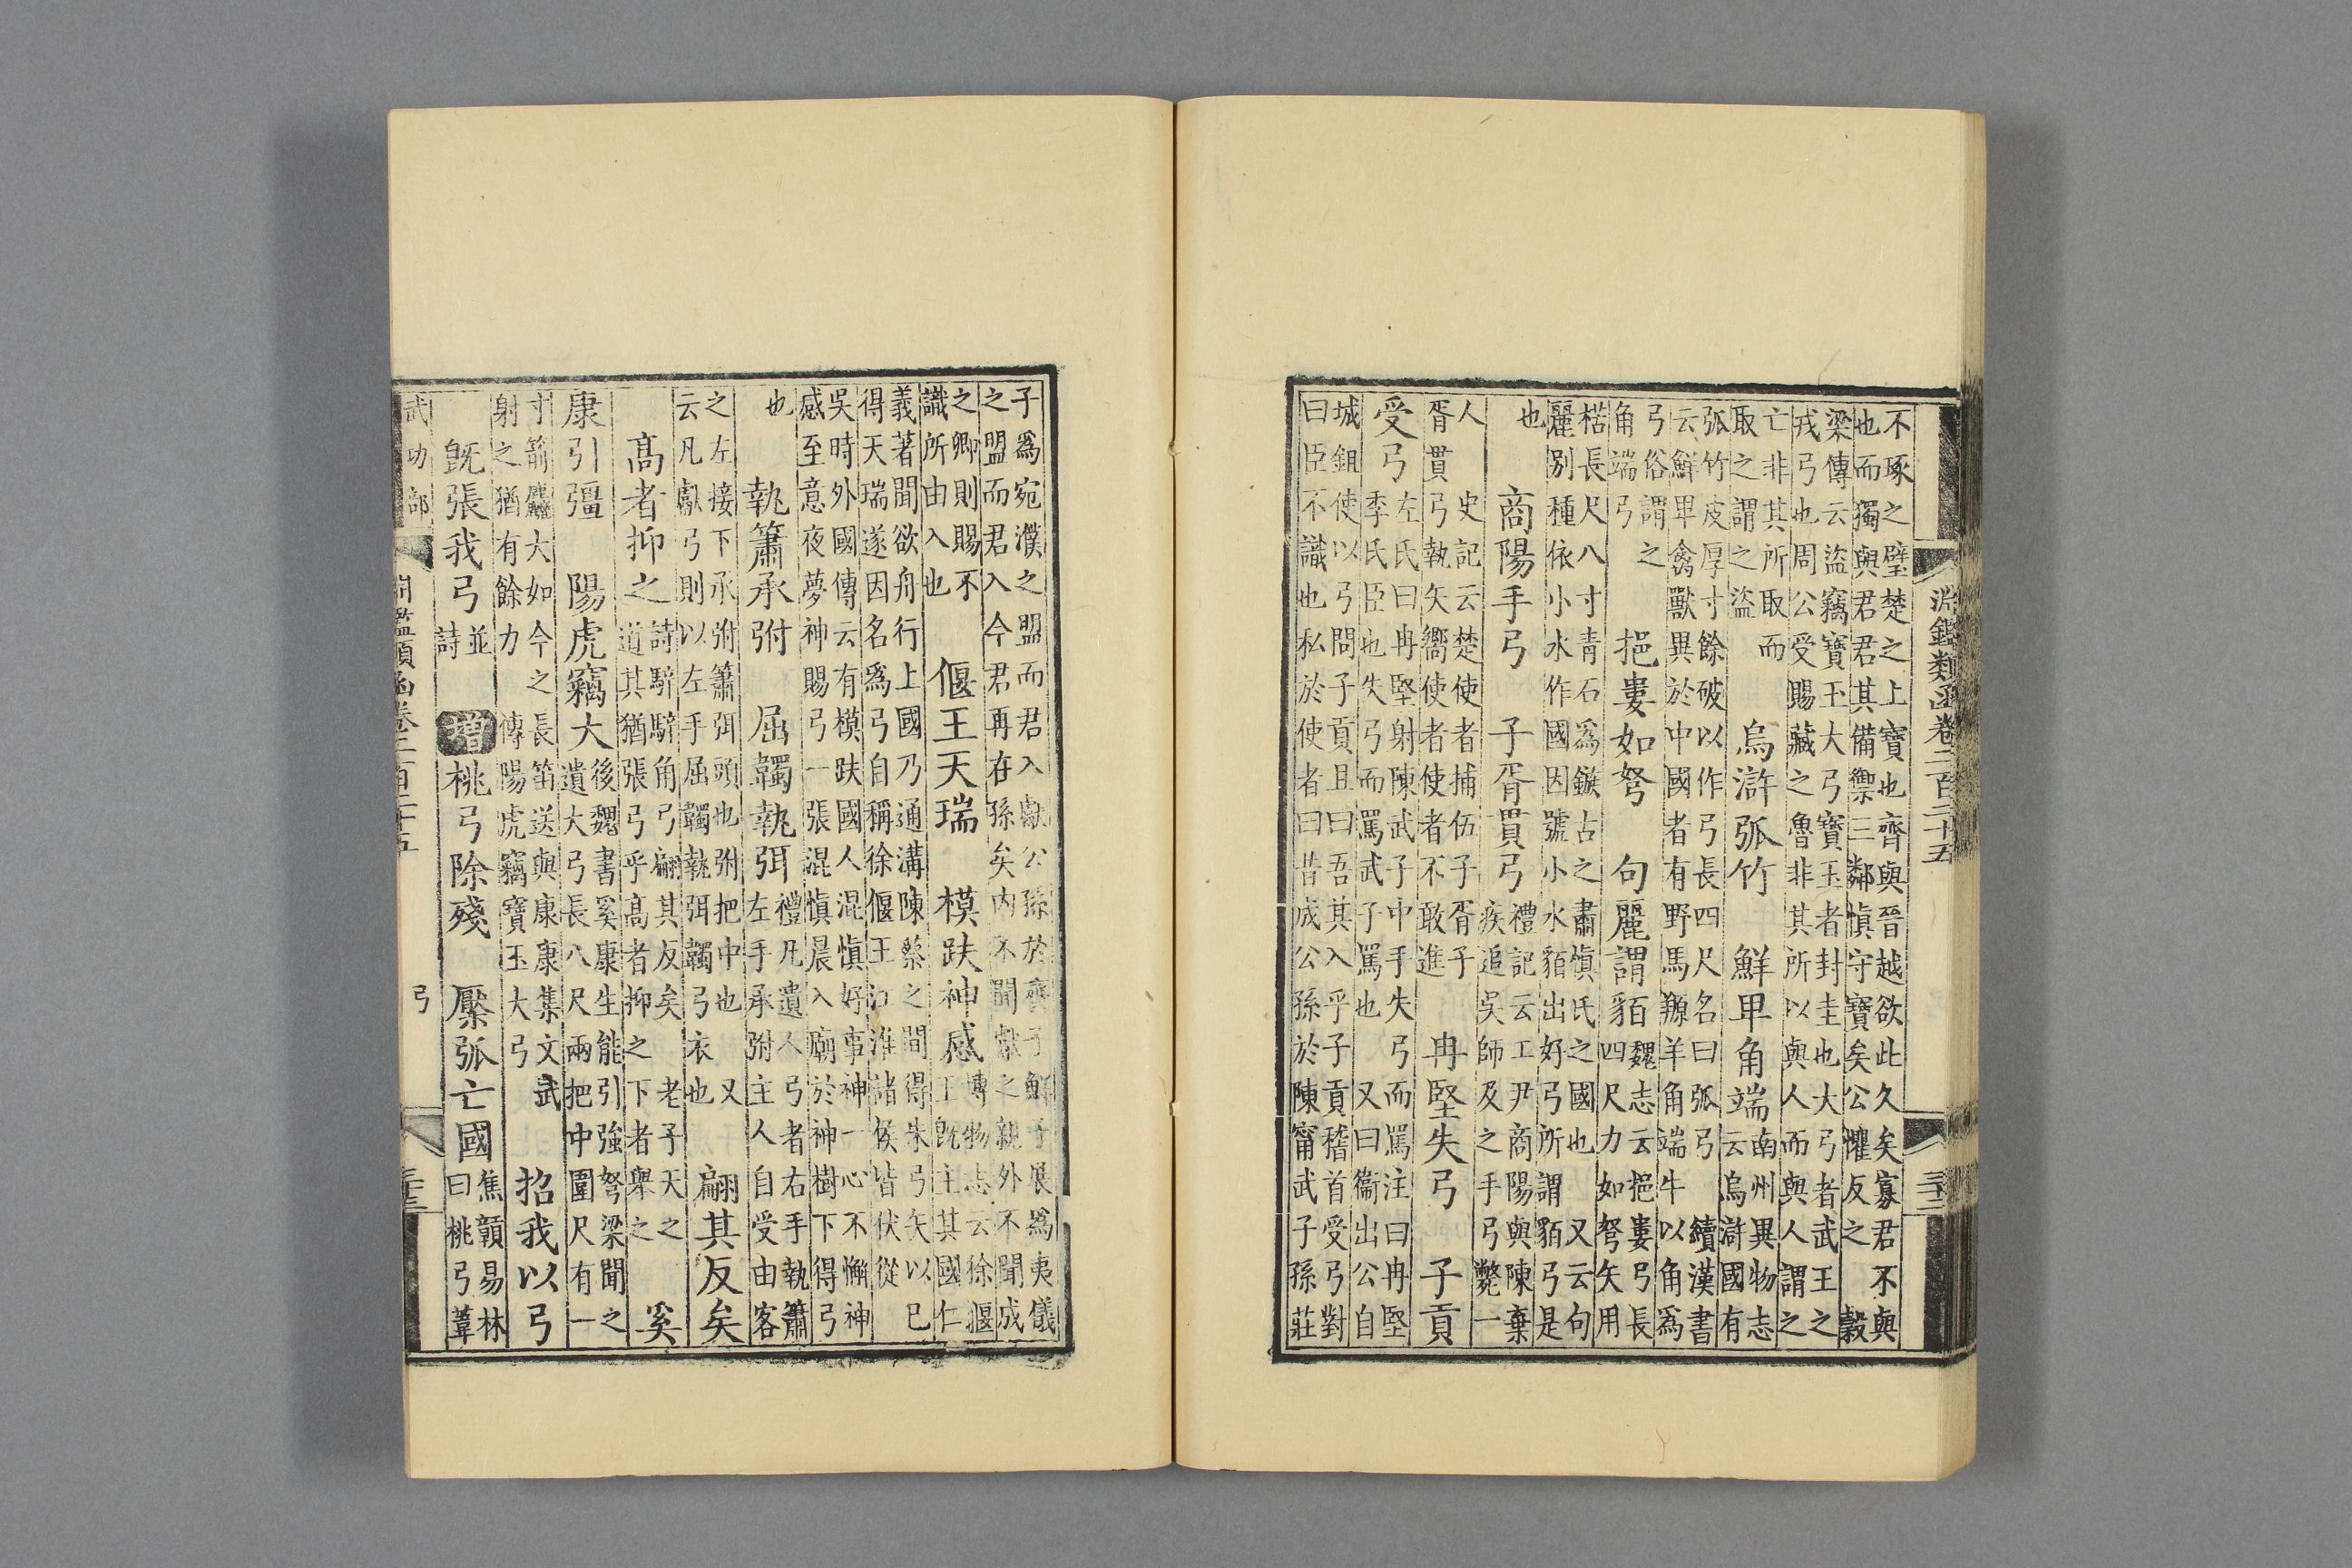 淵鑑類函卷二百二十五 三十二
不琢之璧楚之上寶也齊與晉越欲此久矣寡君不與
也而獨與君君其備禦三鄰慎守寶矣公懼反之 穀
梁傳云盜竊寶玉大弓寶玉者封圭也大弓者武王之
戎弓也周公受賜藏之魯非其所以與人而與人謂之
亡非其所取而
取之謂之盜
烏滸弧竹 鮮卑角端
南州異物志
云烏滸國有
弧竹皮厚寸餘破以作弓長四尺名曰弧弓 續漢書
云鮮卑禽獸異於中國者有野馬羱羊角端牛以角爲
弓俗謂之
角端弓
挹婁如弩 句麗謂貊
魏志云挹婁弓長
四尺力如弩矢用
楛長尺八寸青石爲鏃古之肅慎氏之國也 又云句
麗別種依小水作國因號小水貊出好弓所謂貊弓是
也
商陽手弓 子胥貫弓
禮記云工尹商陽與陳棄
疾追吳師及之手弓斃一
人 史記云楚使者捕伍子胥子
胥貫弓執矢嚮使者使者不敢進
冉堅失弓 子貢
受弓
左氏曰冉堅射陳武子中手失弓而罵注曰冉堅
季氏臣也失弓而罵武子罵也 又曰衞出公自
城鉏使以弓問子貢且曰吾其入乎子貢稽首受弓對
曰臣不識也私於使者曰昔成公孫於陳甯武子孫莊
子爲宛濮之盟而君入獻公孫於齊子鮮子展爲夷儀
之盟而君入今君再在孫矣内不聞獻之親外不聞成
之卿則賜不
識所由入也
偃王天瑞 模趺神感
博物志云徐偃
王既主其國仁
義著聞欲舟行上國乃通溝陳蔡之間得朱弓矢以已
得天瑞遂因名爲弓自稱徐偃王江淮諸侯皆伏從
吳時外國傳云有模趺國人混慎好事神一心不懈神
感至意夜夢神賜弓一張混慎晨入廟於神樹下得弓
也
執簫承弣 屈韣執弭
禮凡遺人弓者右手執簫
左手承弣主人自受由客
之左接下承弣簫弭頭也弣把中也 又
云凡獻弓則以左手屈韣執弭韣弓衣也
翩其反矣
高者抑之
詩騂騂角弓翩其反矣 老子天之
道其猶張弓乎高者抑之下者舉之
奚
康引彊 陽虎竊大
後魏書奚康生能引強弩梁聞之
遺大弓長八尺兩把中圍尺有一
寸箭麤大如今之長笛送與康康集文武
射之猶有餘力 傳陽虎竊寶玉大弓
招我以弓
既張我弓
並
詩
增 桃弓除殘 檿弧亡國
焦贛易林
曰桃弓葦
武功部 淵鑑類函卷二百二十五 弓 三十三